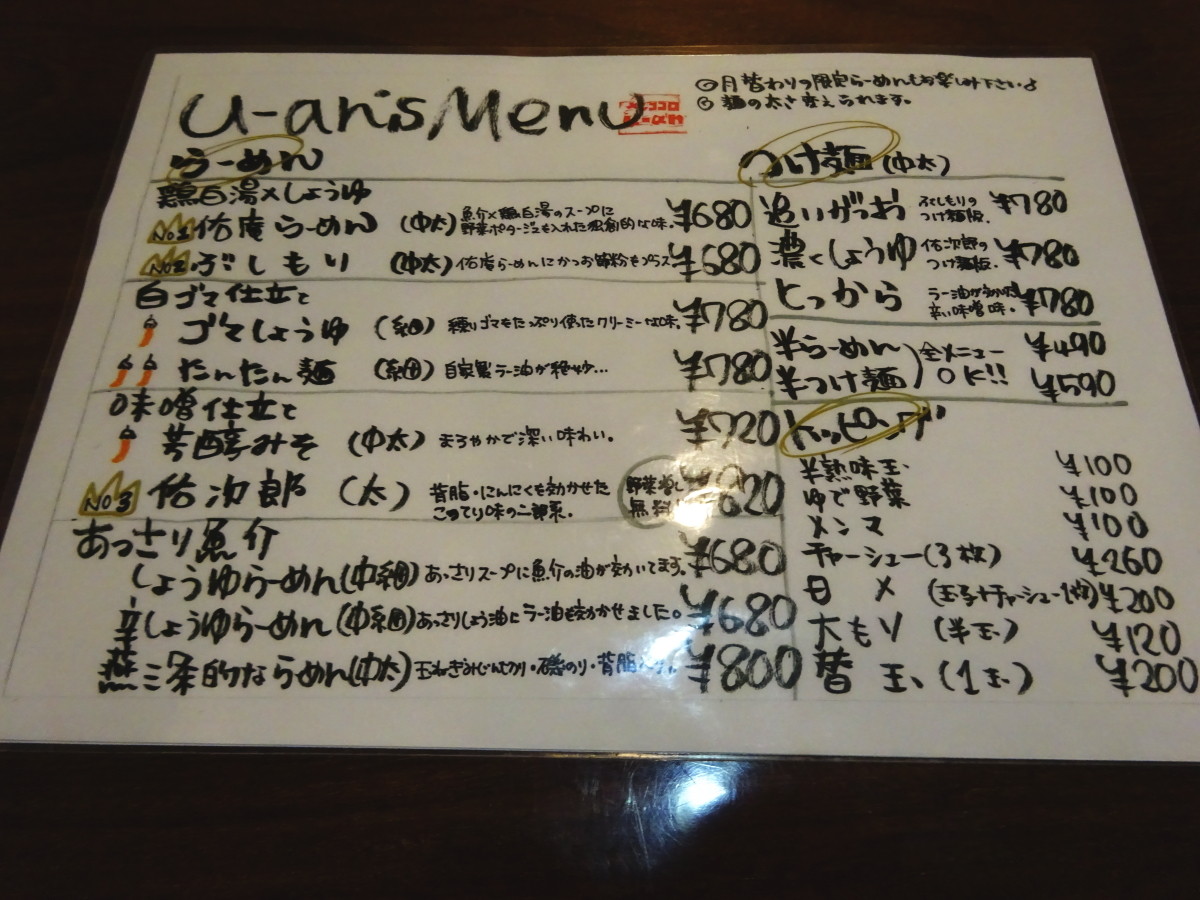 U-an's Menu
◎月替わりの限定らーめんもお楽しみ下さい♪
◎麺の太さ変えられます。
らーめん
鶏白湯×しょうゆ
No1 佑庵らーめん (中太) 魚介×鶏白湯のスープに
野菜ポタージュを入れた独創的な味。 ¥680
No2 ぶしもり (中太) 佑庵らーめんにかつお節粉をプラス ¥680
白ゴマ仕立て
ゴマしょうゆ (細) 練りゴマをたっぷり使ったクリーミーな味。 ¥780
たんたん麺 (細) 自家製ラー油が絶妙… ¥780
味噌仕立て
芳醇みそ (中太) まろやかで深い味わい。 ¥720
No3 佑次郎 (太) 背脂・にんにくを効かせた
こってり味の二郎系。 野菜増し
無料
あっさり魚介
しょうゆらーめん(中細) あっさりスープに魚介の油が効いてます。 ¥680
辛しょうゆらーめん(中細) あっさりしょう油にラー油を効かせました。 ¥680
燕三条的ならーめん(中太) 玉ねぎみじん切り・磯のり・背脂 ¥800
つけ麺(中太)
追いがつお ぶしもりの
つけ麺版。 ¥780
濃くしょうゆ 佑次郎の
つけ麺版。 ¥780
とっから ラー油が効いた
辛い味噌味。 ¥780
半らーめん ¥490
半つけ麺 ¥590
全メニュー
OK!!
トッピング
半熟味玉 ¥100
ゆで野菜 ¥100
メンマ ¥100
チャーシュー(3枚) ¥260
日 メ (玉子+チャーシュー1枚) ¥200
大もり (半玉) ¥120
替 玉 (1玉) ¥200